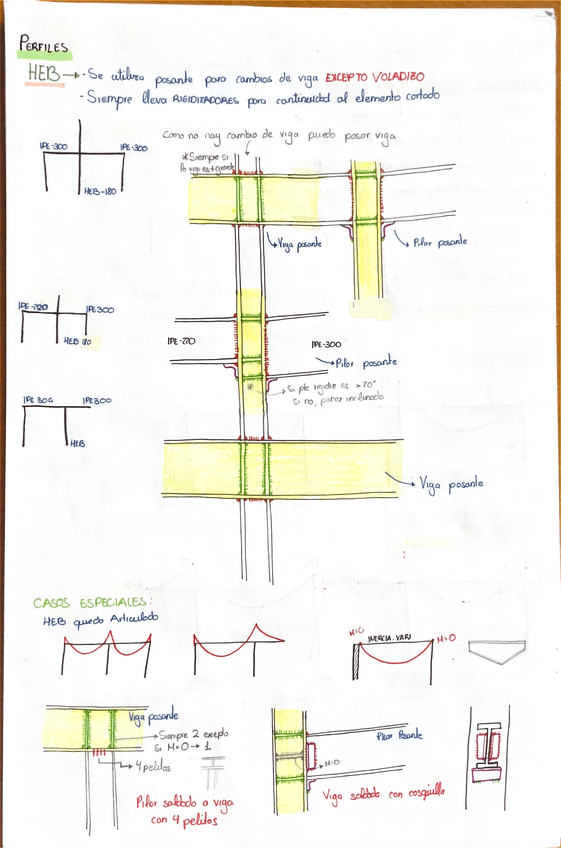 PERFILES
HEB → - Se utiliza pasante para cambios de viga EXCEPTO VOLADIZO
- Siempre lleva RIGIDIZADORES para continuidad al elemento cortado
Como no hay cambio de viga puedo pasar viga
IPE-300
IPE-300
HEB-180
*Siempre si
la viga es + grande
Viga pasante
Pilar pasante
IPE-220
IPE300
HEB 180
IPE-270
IPE-300
Pilar pasante
*
Si pte rigidiz es = 20°
Si no, poner inclinado
IPE 300
IPE300
HEB
Viga pasante
CASOS ESPECIALES:
HEB queda Articulado
M=0
INERCIA VARI
M=0
Viga pasante
Siempre 2 excepto
si M=0 → 1
4 pelitos
Pilar soldado a viga
con 4 pelitos
Pilar Pasante
M=0
Viga soldada con casquillo